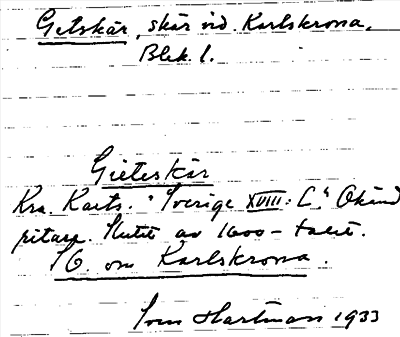 Getskär, skär vid Karlskrona.
Blek. l.
Gieteskär
Kra. Karts. "Sverige XVIII: C." Okänd
ritare. Slutet av 1600-talet.
SO. om Karlskrona.
Hartman 1933